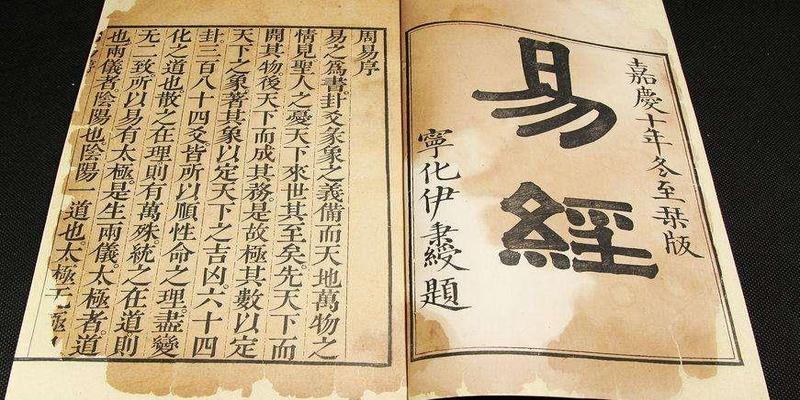 嘉慶十年冬至栞版
易經
寧化伊秉綬題
周易序
易之爲書。卦爻彖象之義備而天地萬物之
情見。聖人之憂天下來世。其至矣。先天下而
開其物。後天下而成其務。是故極其數以定
天下之象。著其象以定天下之吉凶。六十四
卦三百八十四爻。皆所以順性命之理。盡變
化之道也。散之在理則有萬殊。統之在道則
无二致。所以易有太極。是生兩儀。太極者。道
也。兩儀者。陰陽也。陰陽一道也。太極无極